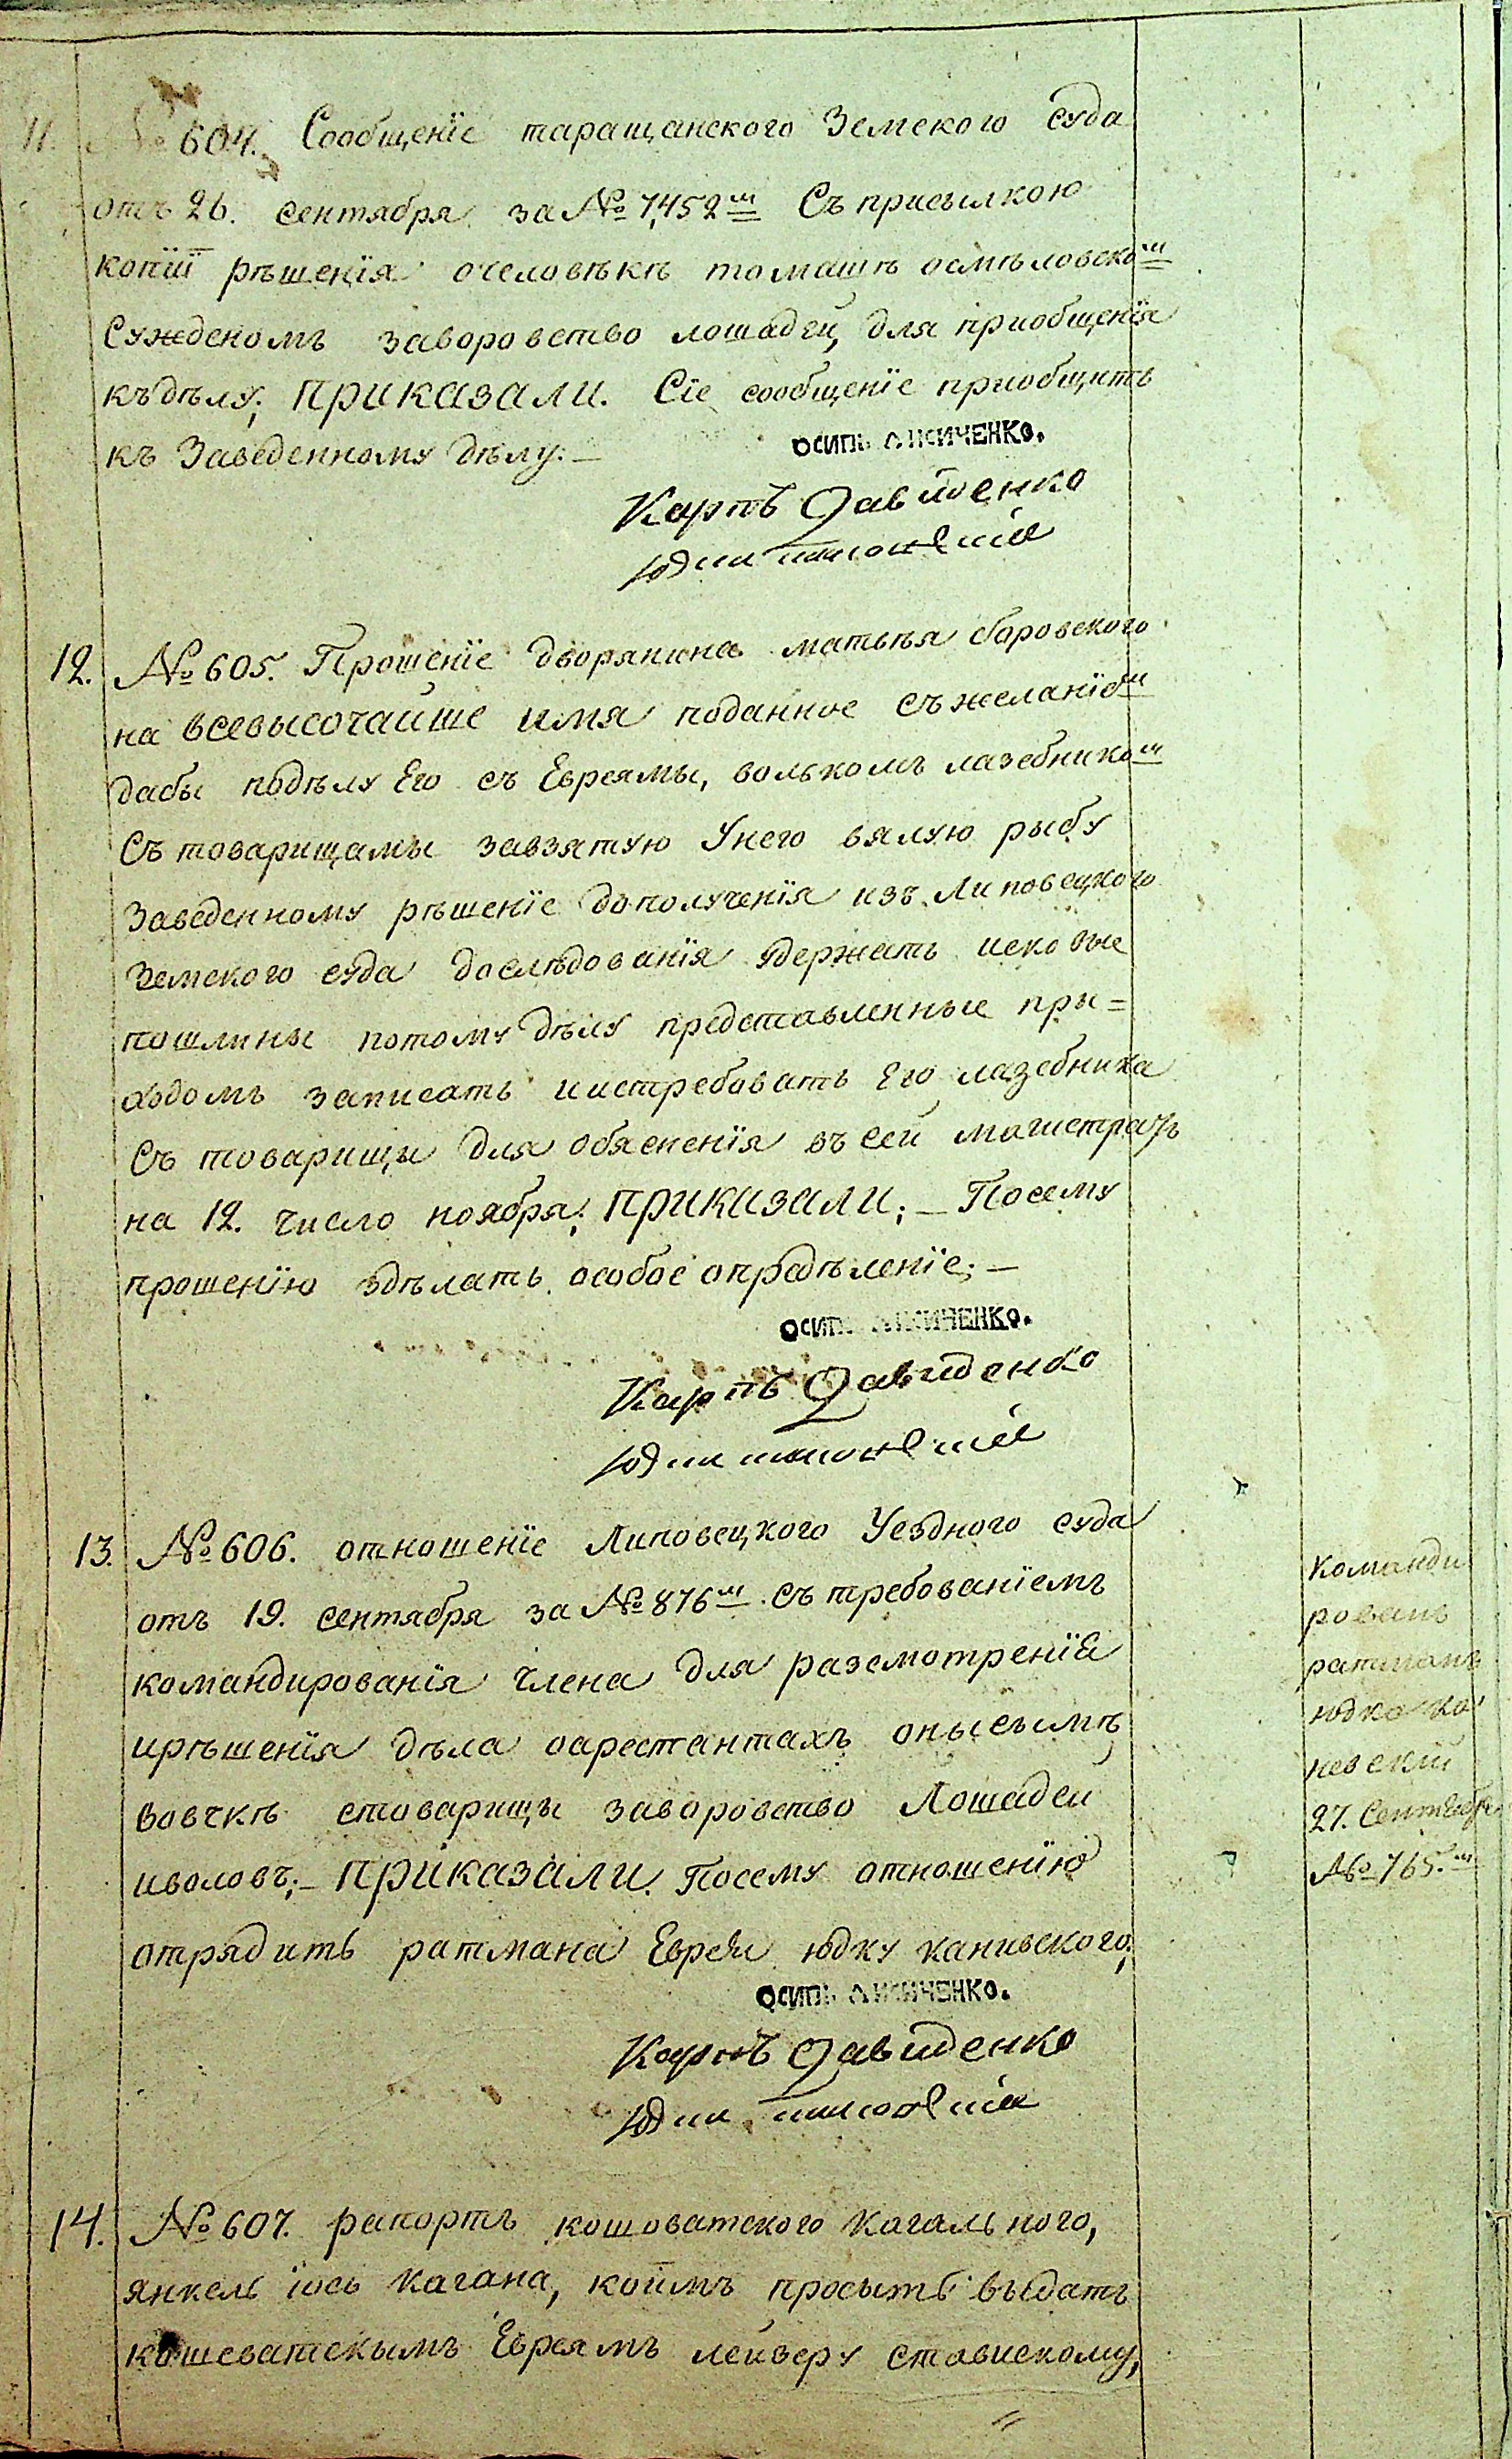 11. № 604. Сообщенїе таращанского Земского суда
отъ 26. сентября за № 7,452м Съ присылкою
копїи рѣшенїя очеловѣкѣ томашѣ осмѣловском
Сужденомъ заворовство лошадей, для приобщенїя
къдѣлу; приказали. Сїе сообщенїе приобщить
къ Заведенному дѣлу:—
осипъ лисиченко.
Карпъ Давиденко
12. № 605. Прошенїе дворянина матвѣя боровского
на всевысочайше имя поданное съжеланїем
дабы подѣлу Его съ Евреямы, волькомъ лазебником
Съ товарищамы завзятую Унего вялую рыбу
Заведенному рѣшенїе дополученїя изъ Липовецкого
Земского суда дослѣдованїя удержать исковые
пошлины потому дѣлу представленные при=
ходомъ записать иистребовать Его лазебника
Съ товарищы для обясненїя въ сей магистратъ
на 12. число ноября; приказали; — Посему
прошенїю здѣлать особое определенїе; —
осипъ лисиченко.
Карпъ Давиденко
13. № 606. отношенїе Липовецкого Уездного суда
отъ 19. сентября за № 876м. Съ требованїемъ
командированїя члена для разсмотренїя
ирѣшенїя дѣла оарестантахъ онысымѣ
вовчкѣ стоварищы заворовство Лошадей
иволовъ; — приказали. Посему отношенїю
отрядить ратмана Еврея юдку каневского;
осипъ лисиченко.
Карпъ Давиденко
команди
рованъ
ратманъ
юдко ка
невский
27. Сентября
№ 765.м
14. № 607. рапортъ кошоватского кагального,
янкель їось кагана, коимъ просытъ выдать
кошеватскымъ Евреямъ лейзеру ставискому,